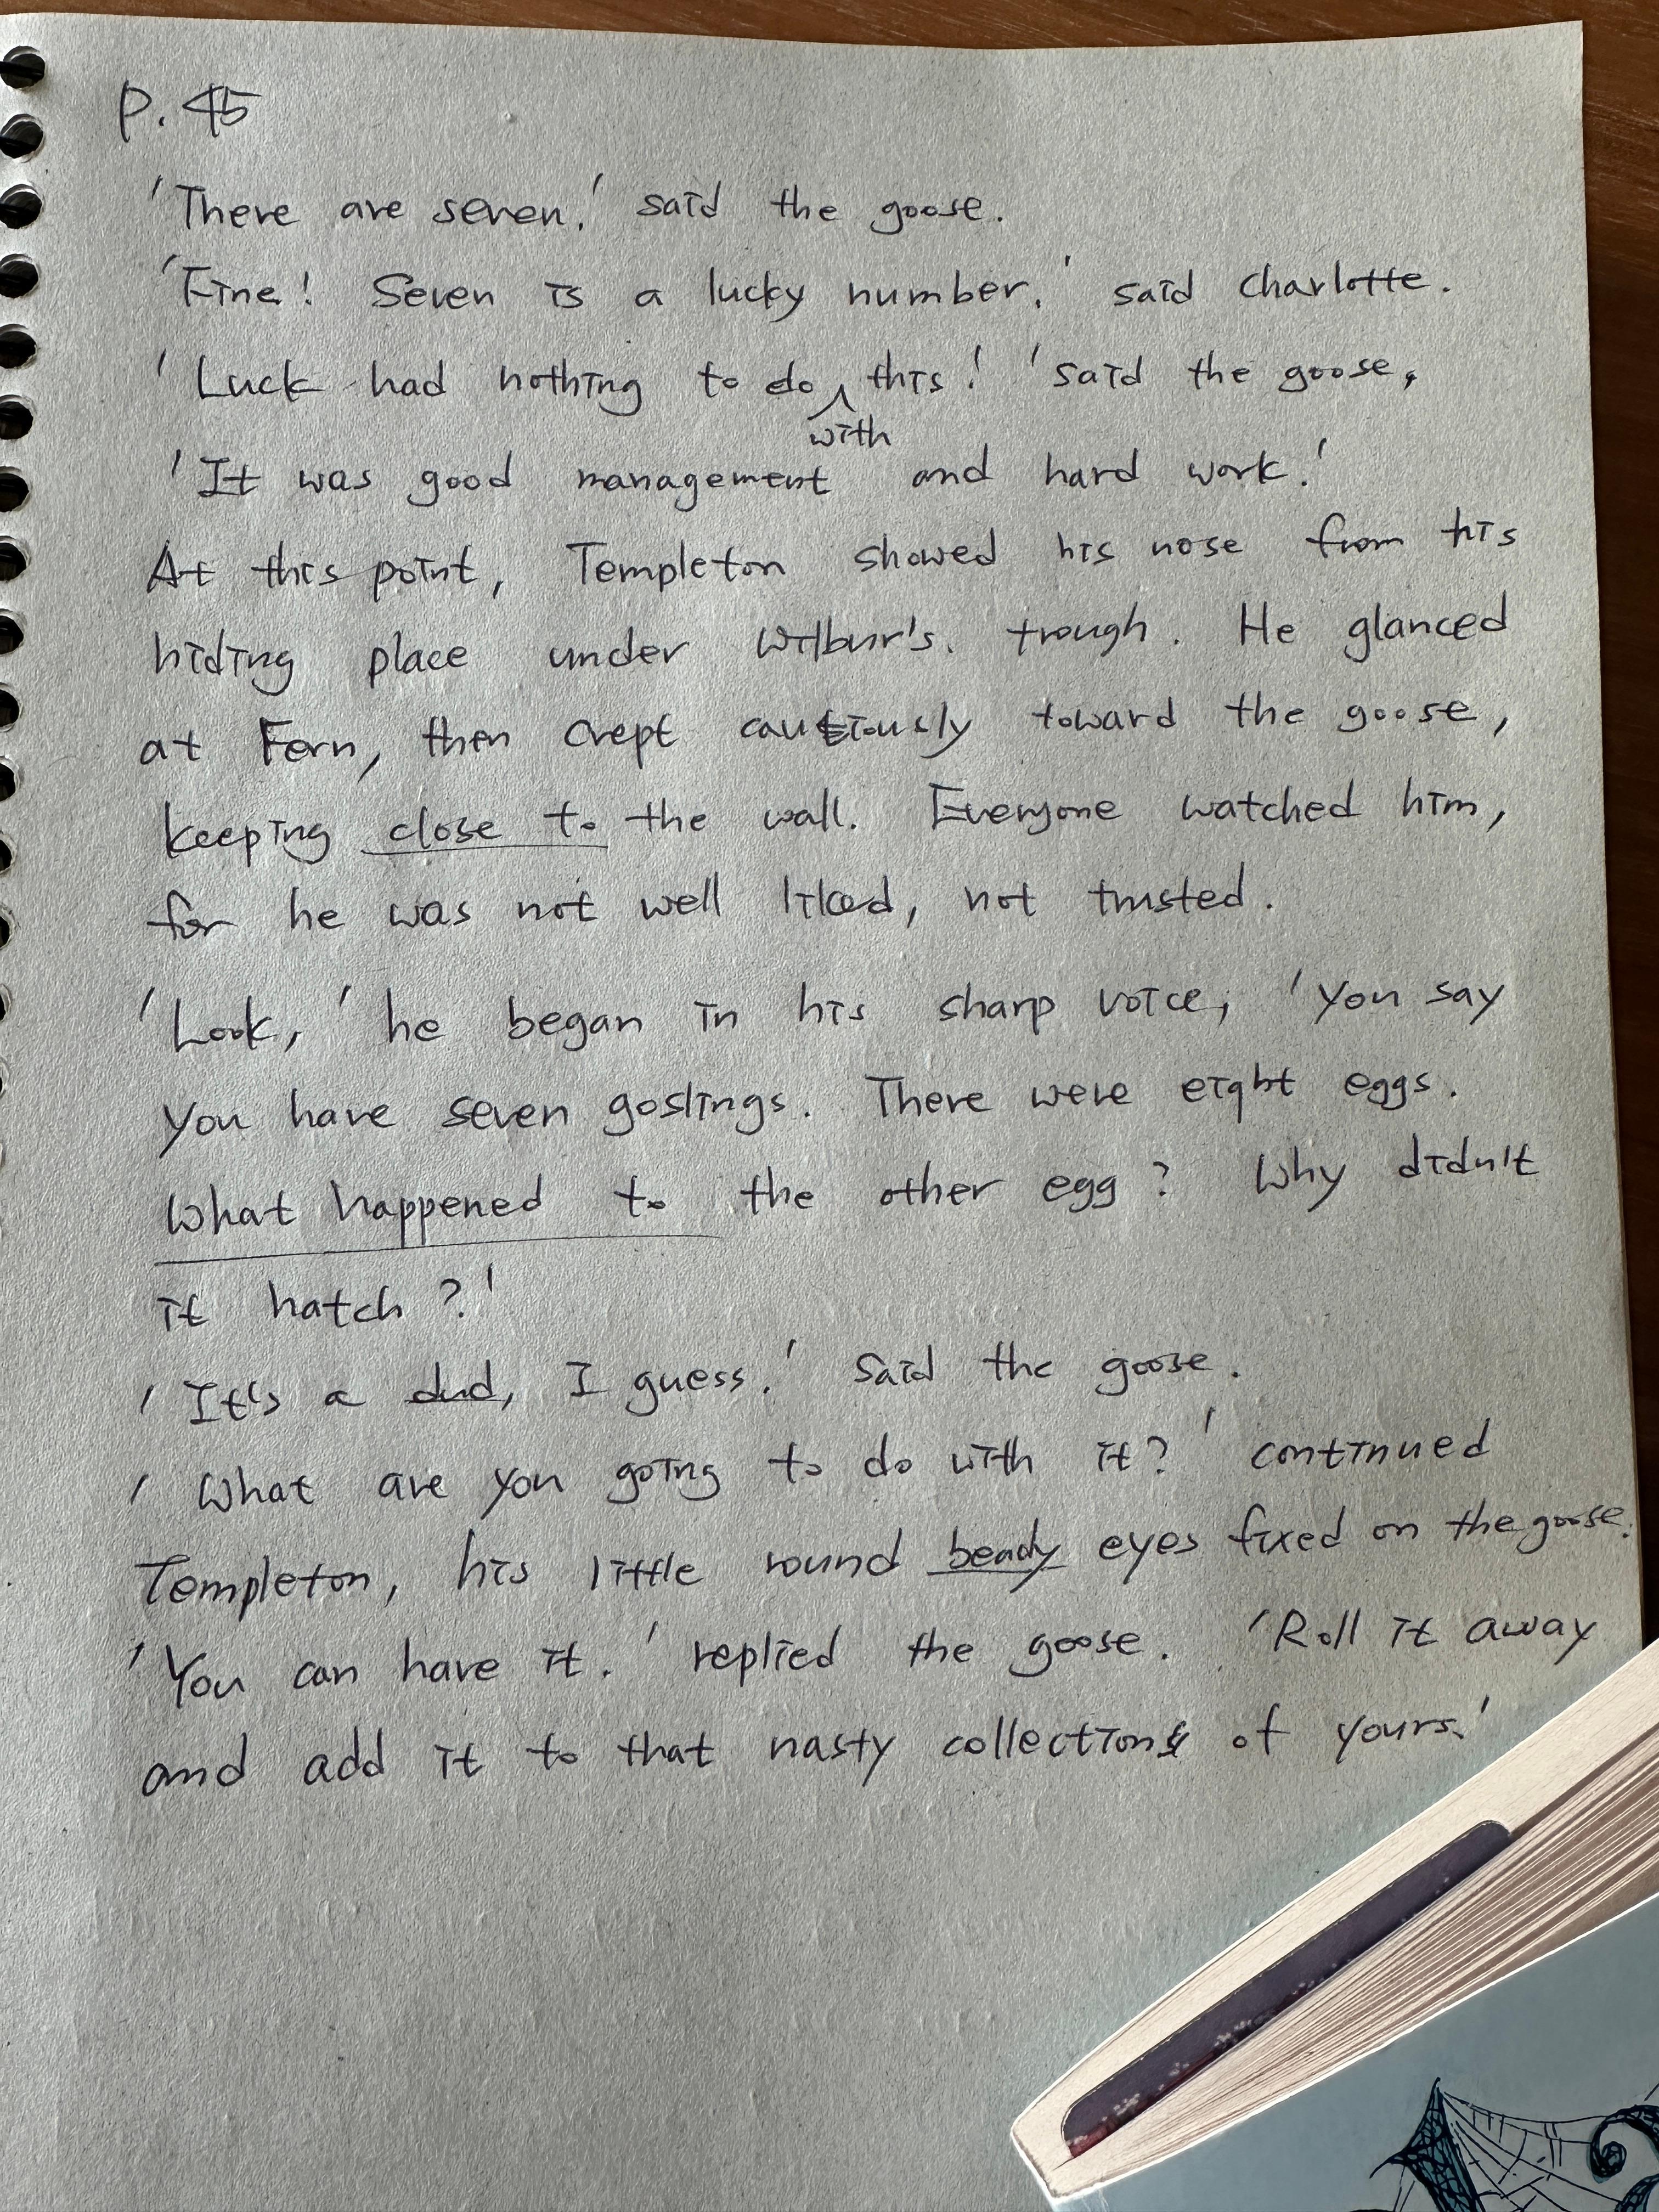 P. 45
'There are seven.' said the goose.
'Fine! Seven is a lucky number.' said Charlotte.
'Luck had nothing to do with this!' said the goose.
'It was good management and hard work.'
At this point, Templeton showed his nose from his
hiding place under Wilbur's. trough. He glanced
at Fern, then crept cautiously toward the goose,
keeping close to the wall. Everyone watched him,
for he was not well liked, not trusted.
'Look,' he began in his sharp voice, 'you say
you have seven goslings. There were eight eggs.
What happened to the other egg? Why didn't
it hatch?'
'It's a dud, I guess.' said the goose.
'What are you going to do with it?' continued
Templeton, his little round beady eyes fixed on the goose.
'You can have it.' replied the goose. 'Roll it away
and add it to that nasty collection of yours.'